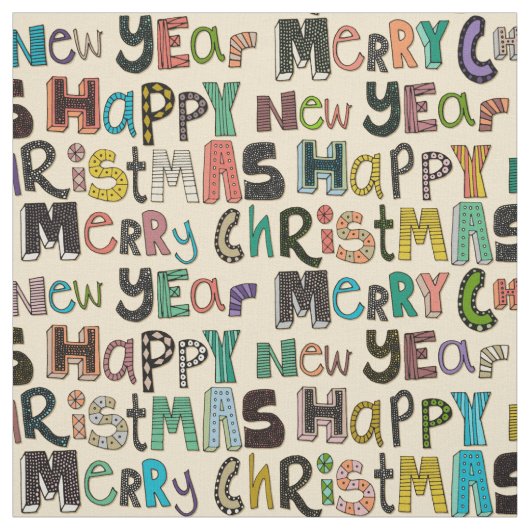 New YEar MERRY C
S HAPPY New YEar
RistMAS HAPPY
MERRY ChRistMAS
New YEar MERRY Ch
S HAPPY New YEar
hRistMAS HAPPY
MERRY ChRistMAS